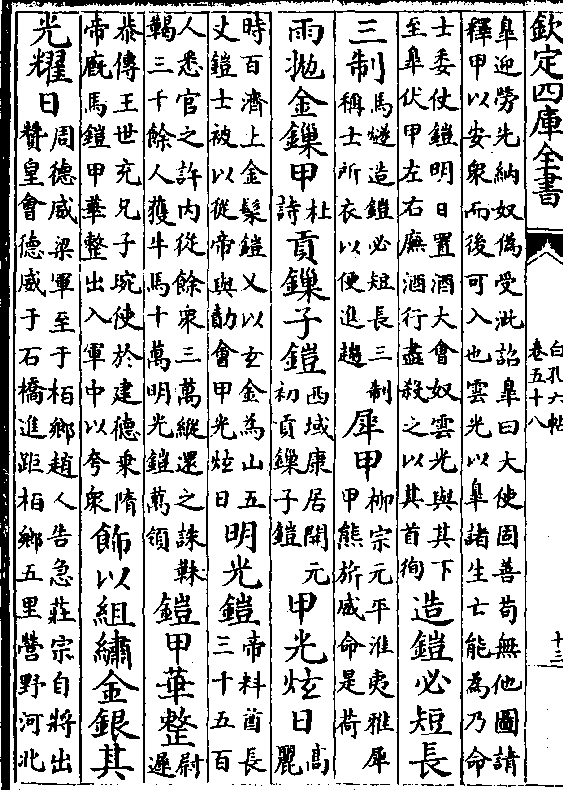 欽定四庫全書
白孔六帖
卷五十八
十三
皐迎勞先納奴偽受泚詔皐曰大使固善苟無他圖請
釋甲以安衆而後可入也雲光以皐諸生亡能為乃命
士委仗鎧明日置酒大會奴雲光與其下
至皐伏甲左右廡酒行盡殺之以其首徇
造鎧必短長
三制
馬燧造鎧必短長三制
稱士所衣以便進趨
犀甲
柳宗元平淮夷雅犀
甲熊旂威命是荷
雨拋金鏁甲
杜
詩
貢鏁子鎧
西域康居開元
初貢鏁子鎧
甲光炫日
髙
麗
時百濟上金髹鎧又以玄金為山五
文鎧士被以從帝與勣會甲光炫日
明光鎧
帝料酋長
三十五百
人悉官之許內從餘衆三萬縱還之誅靺
鞨三千餘人獲牛馬十萬明光鎧萬領
鎧甲華整
尉
遲
恭傳王世充兄子琬使於建德乘隋
帝廐馬鎧甲華整出入軍中以夸衆
飾以組繡金銀其
光耀日
周德威梁軍至于栢鄉趙人告急莊宗自將出
贊皇會德威于石橋進距栢鄉五里營野河北